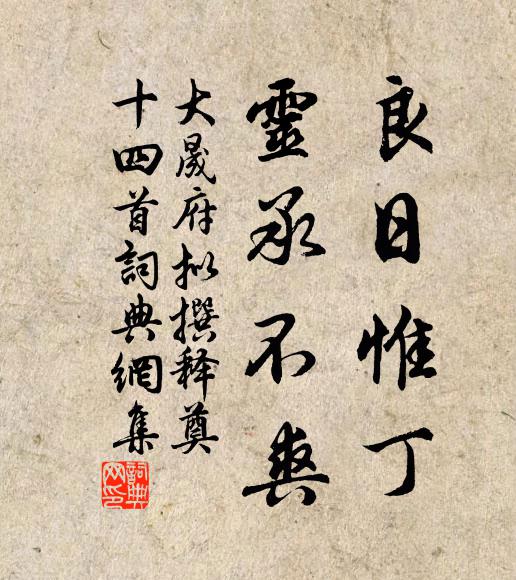 良日惟丁
靈承不爽
大晟府拟撰释奠
十四首詞典網集
詞典網印